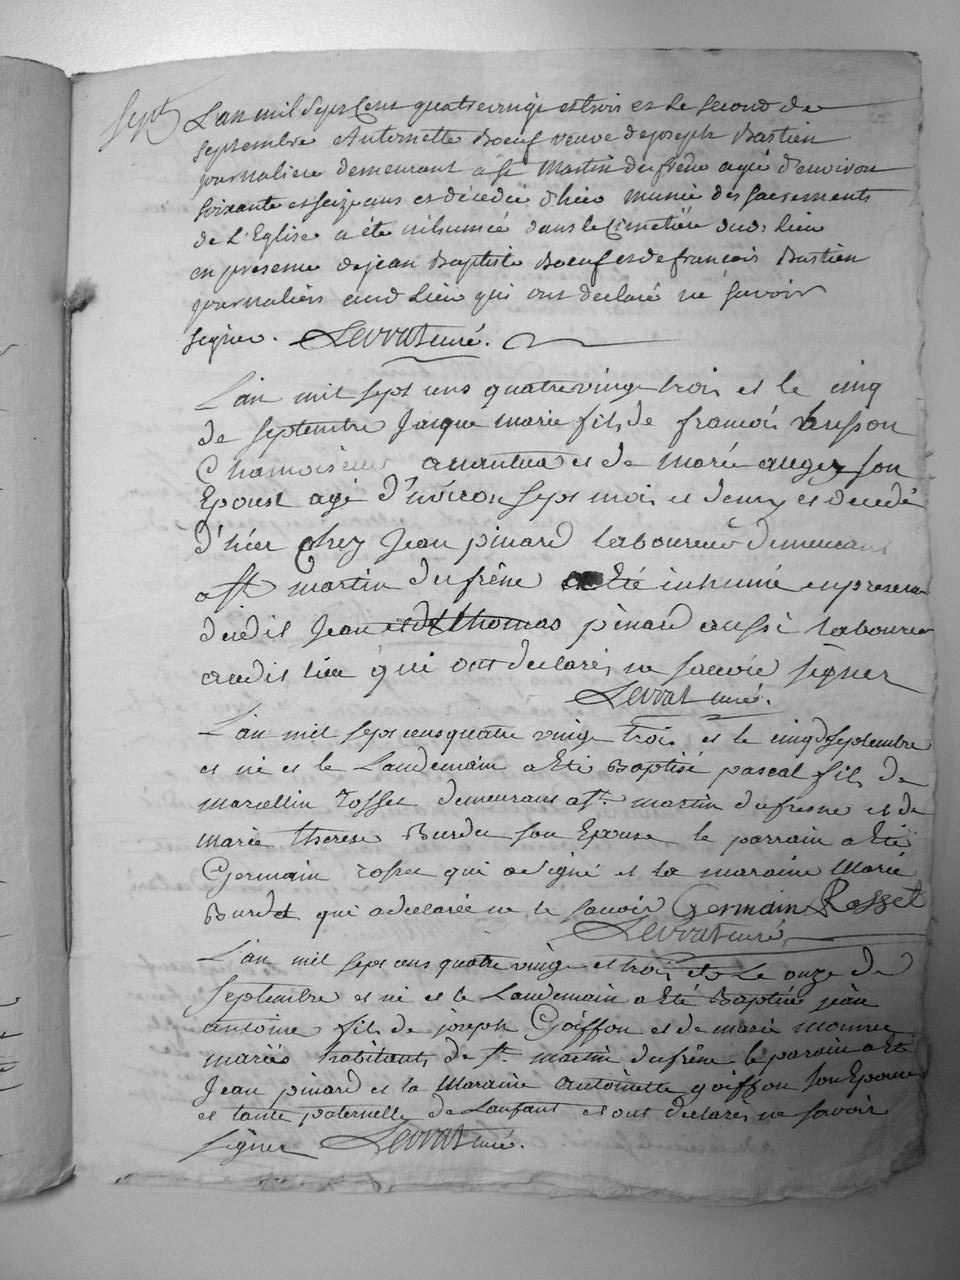 Sept
L'an mil sept cent quatre vingt et trois et le second de
septembre Antoinette Boeuf veuve de joseph Bastien
journaliere demeurant a st Martin du frêne agée d'environ
soixante et seize ans est décédée d'hier munie des sacrements
de l'Eglise a été inhumée dans le Cimetière dud. lieu
en presence de jean Baptiste Boeuf et de francois Bastien
journaliers aud. lieu qui ont declaré ne savoir
signer. Levrat curé.
L'an mil sept cens quatre vingt trois et le cinq
de septembre Jacque marie fils de francois
Chamoiseur a nantua et de marie auger son
Epouse agé d'environ sept mois et demy est decedé
d'hier Chez Jean pinard laboureur demeurant
a st martin du frêne a Eté inhumé en presence
dudit Jean et de thomas pinard aussi laboureur
audit lieu qui ont declarés ne savoir signer
Levrat curé.
L'an mil sept cens quatre vingt trois et le cinq septembre
est né et le Landemain a Eté Baptisé pascal fils de
marcellin rosset demeurant a st. martin du fresne et de
marie therese Burdet son Epouse le parrain a Eté
Germain rosset qui a signé et la maraine Marie
Burdet qui a declarée ne le savoir Germain Rosset
Levrat curé
L'an mil sept cens quatre vingt et trois et le onze de
septembre est né et le Landemain a Eté Baptisé jean
antoine fils de joseph Goiffon et de marie
mariés habitants de st. martin du frêne le parain a Eté
Jean pinard et la Maraine antoinette goiffon son Epouse
et tante paternelle de Lanfant et ont declarés ne savoir
signer Levrat curé.